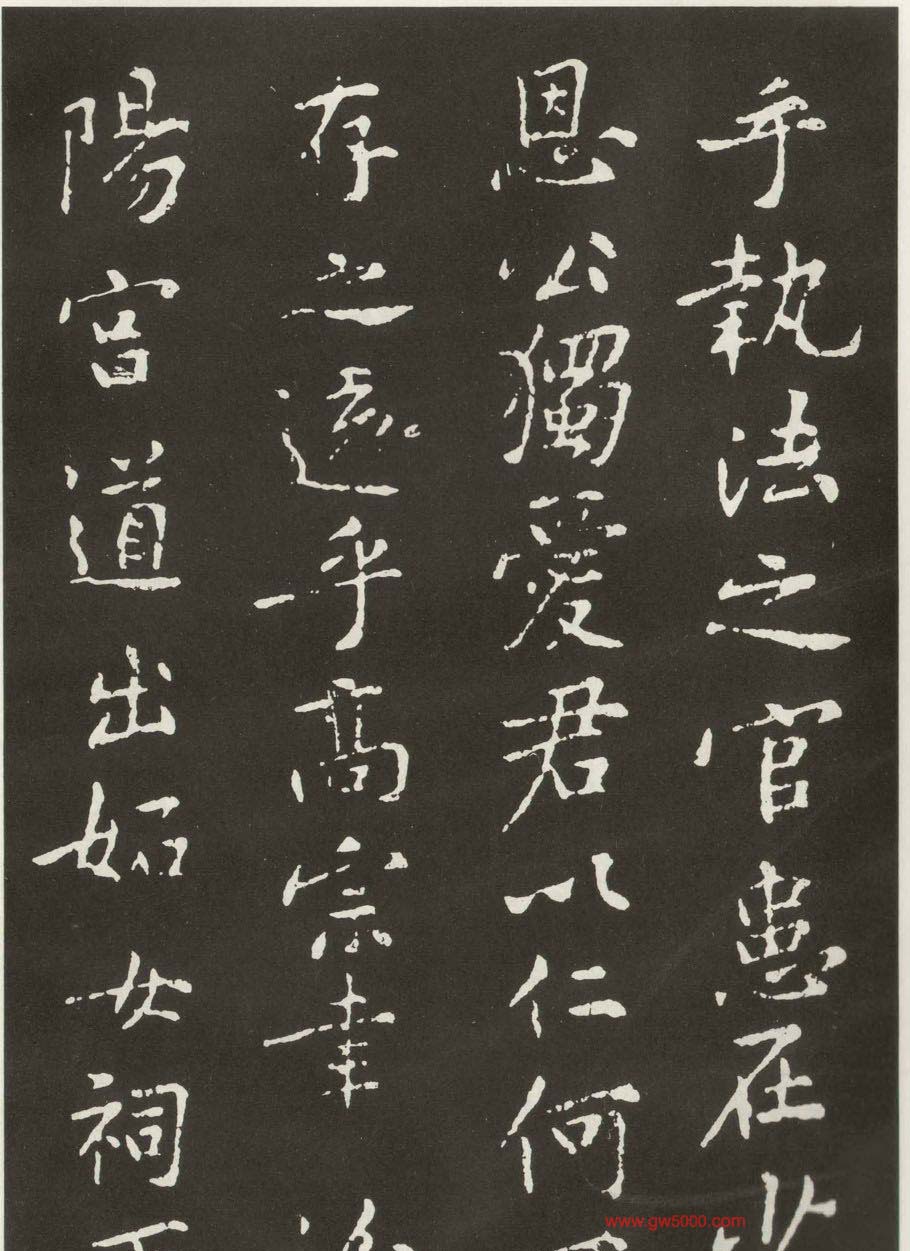 乎執法之官患在
恩公獨愛君以仁何
存之遠乎高宗幸
陽宮道出妬女祠
www.gw5000.com